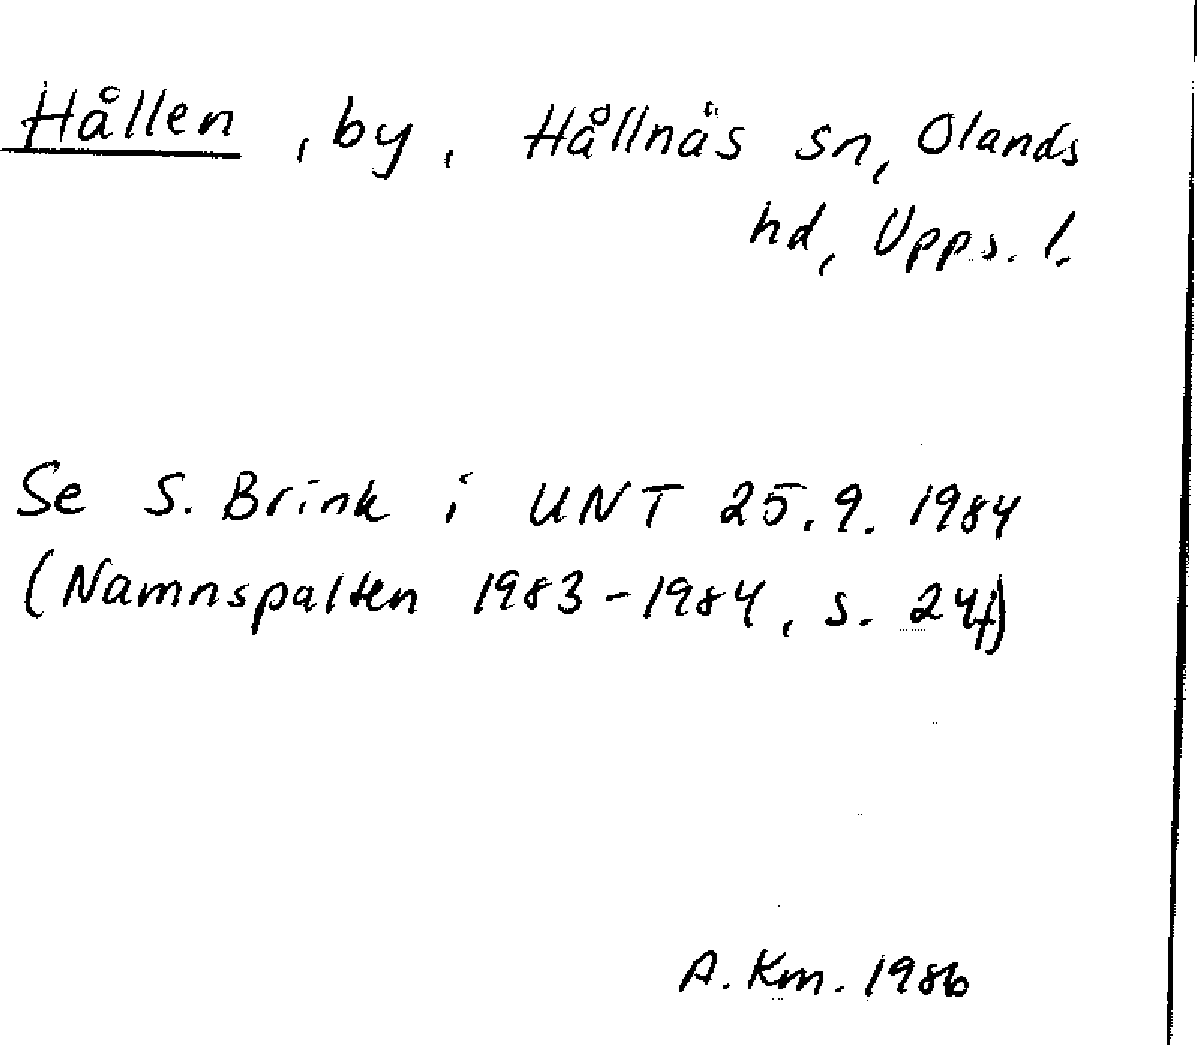 Hållen, by, Hållnäs sn, Olands
hd, Upps. l.
Se S. Brink i UNT 25.9. 1984
(Namnspalten 1983-1984, s. 24f)
A. Km. 1986